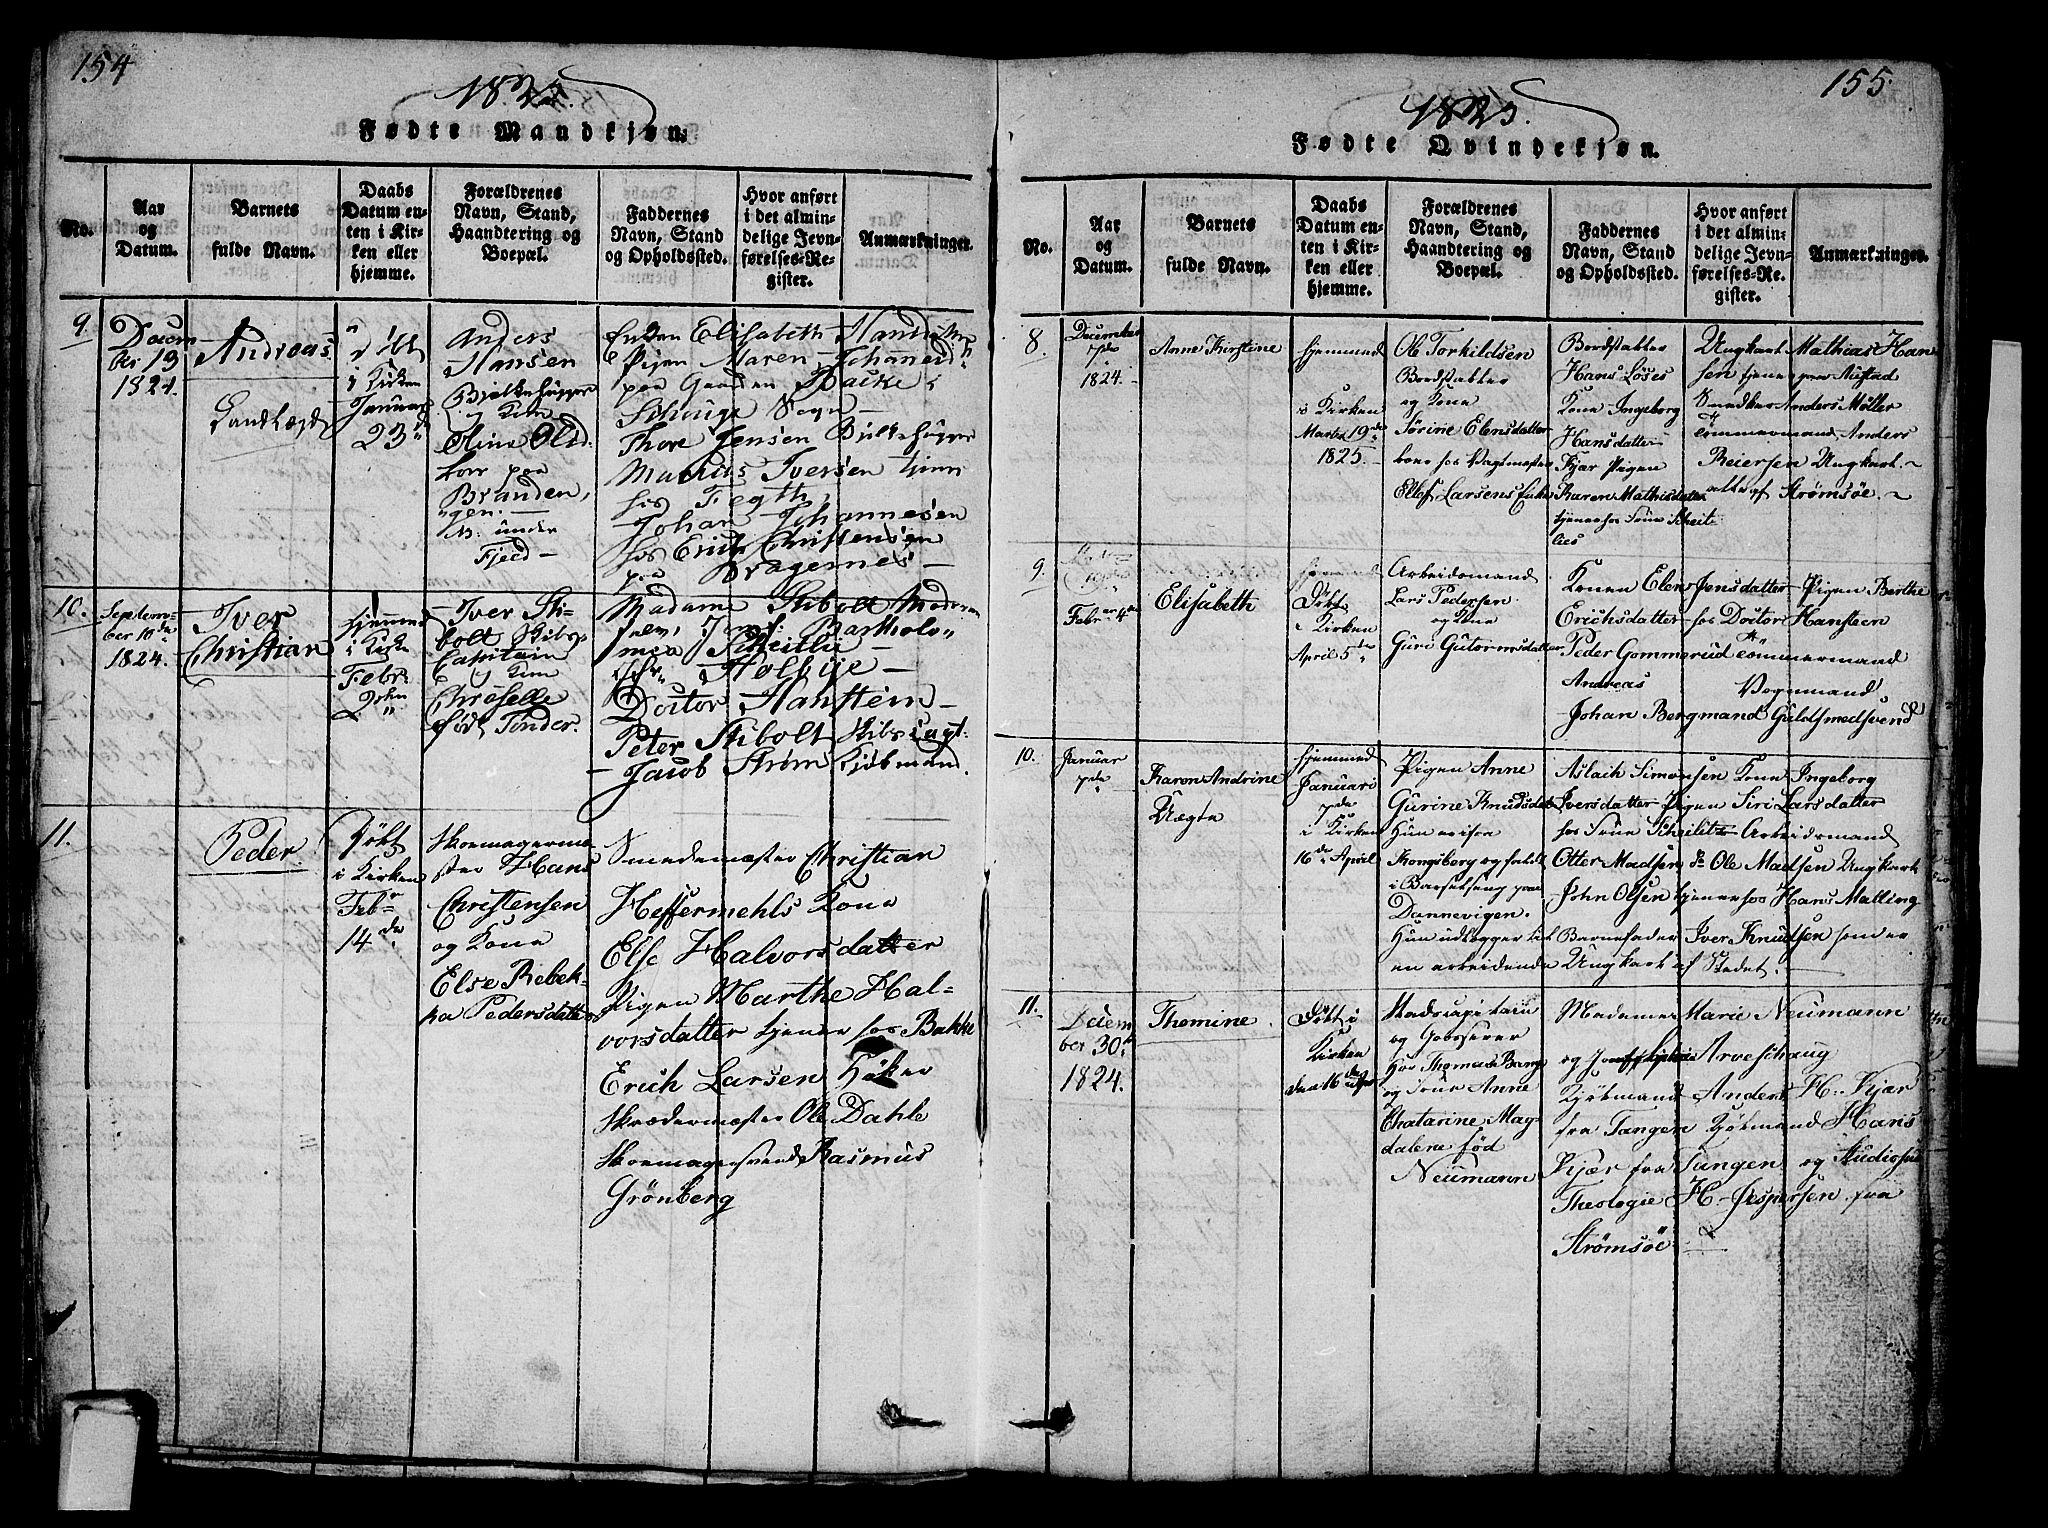 154
1825.
Fødte Mandkjøn.
No.
Aar og Datum.
Barnets fulde Navn.
Daabs Datum enten i Kirken eller hjemme.
Forældrenes Navn, Stand, Haandtering og Boepæl.
Faddernes Navn, Stand og Opholdssted.
Hvor anført i det almindelige Jevnførelses-Register.
Anmærkninger.
9.
Decem
ber 19
1824.
Andreas
døbt
i Kirken
Januar
23de
Anders
Hansen
og Kone
Oline Ols
paa
Branden,
gen.
under
Fjeld
Enken Elisabeth
Pigen Maren Johannes
paa Gaarden Backe
Sogn
Thore Jensen
Marcus Iversen tjener
hos Fegth,
Johan Johannesen
hos Erich Christensen
paa Bragernes
10.
Septem
ber 10de
1824.
Iver
Christian
hjemme
i Kirke
Febr.
2den
Iver Sti
bolt Skibs
Capitain
og Kone
Chroselle
født Tønder.
Madame Stibolt Moderen
selv, Jmf: Bartholo
mea Scheillie
Holbye
Doctor Hanstein
Peter Stibolt
Jacob Strøm Kjøbmand.
11.
Peder
Døbt
i Kirken
Febr
14de
Skoemagerme
ster Hans
Christensen
og Kone
Else Rebek
ka Pedersdatter
Smedemester Christian
Heffermehls Kone
Else Halvorsdatter
Pigen Marthe Hal
vorsdatter tjener hos Bakke
Erich Larsen
Skrædermester Ole Dahle
Skoemagersvend Rasmus
Grönberg
155.
1825.
Fødte Qvindekjøn.
No.
Aar og Datum.
Barnets fulde Navn.
Daabs Datum enten i Kirken eller hjemme.
Forældrenes Navn, Stand, Haandtering og Boepæl.
Faddernes Navn, Stand og Opholdssted.
Hvor anført i det almindelige Jevnførelses-Register.
Anmærkninger.
8.
December
7de
1824.
Anne Kirstine
hjemmed
i Kirken
Marts 19de
1825.
Ole Torkildsen
Bordstabler
og Kone
Sørine Elensdatter
boer hos Vagtmester
Ellef Larsens Enke
Bordstabler
Hans Löses
Kone Ingeborg
Hansdatter
Kjær Pigen
Karen Mathisdatter
tjener hos
Ungkarl Mathias Han
sen tjener paa Mustad
Snedker Anders Möller
Tömmermand Anders
Reiersen Ungkarl
alle af Strømsøe.
9.
Febr. 4de
Elisabeth
Døbt
i Kirken
April 5de
Arbeidsmand
Lars Pedersen
og Kone
Guri Gutormsdatter
Konen Elen Jensdatter Pigen Berthe
Erichsdatter hos Doctor Hansteen
Peder Gommerud Tömmermand
Andreas Vognmand
Johan Bergmand Guldsmedsvend
10.
Januar
7de
Karen Andrine
Uægte
hjemmed
Januari
7de
i Kirken
16de April
Pigen Anne
Gurine Knudsdatter
Hun er fra
Kongsberg og faldt
i Barselseng paa
Dannevigen.
Hun udlægger til Barnefader Iver Knudsen som er
en arbeidende Ungkarl af Stedet.
Aslach Simonsen Kone Ingeborg
Iversdatter Pigen Siri Larsdatter
hos Arbeidsmand
Otter Madsen Ole Madsen Ungkarl
John Olsen tjener hos Hans Malling
11.
Decem
ber 30te
1824.
Themine
Døbt i
Kirken
den 16de
Stadscapitain
og
Hr Thomas Bang
og Frue Anne
Chatarine Mag
dalene född
Neumann
Madame Marie Neumann
og Arveschaug
Kjøbmand Anders H. Kjær
fra Tangen Kjøbmand Hans
Kjær fra Tangen og Studiosus
Theologie H. Jespersen fra
Strømsøe